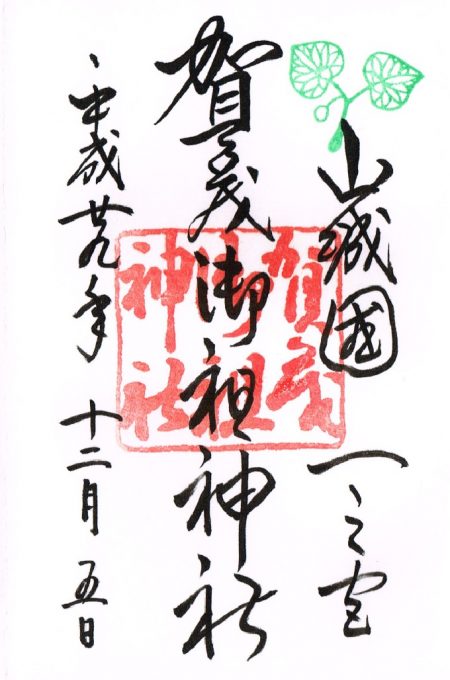 山城國一之宮
賀茂御祖神社
平成廿九年十二月五日
賀茂
御祖
神社